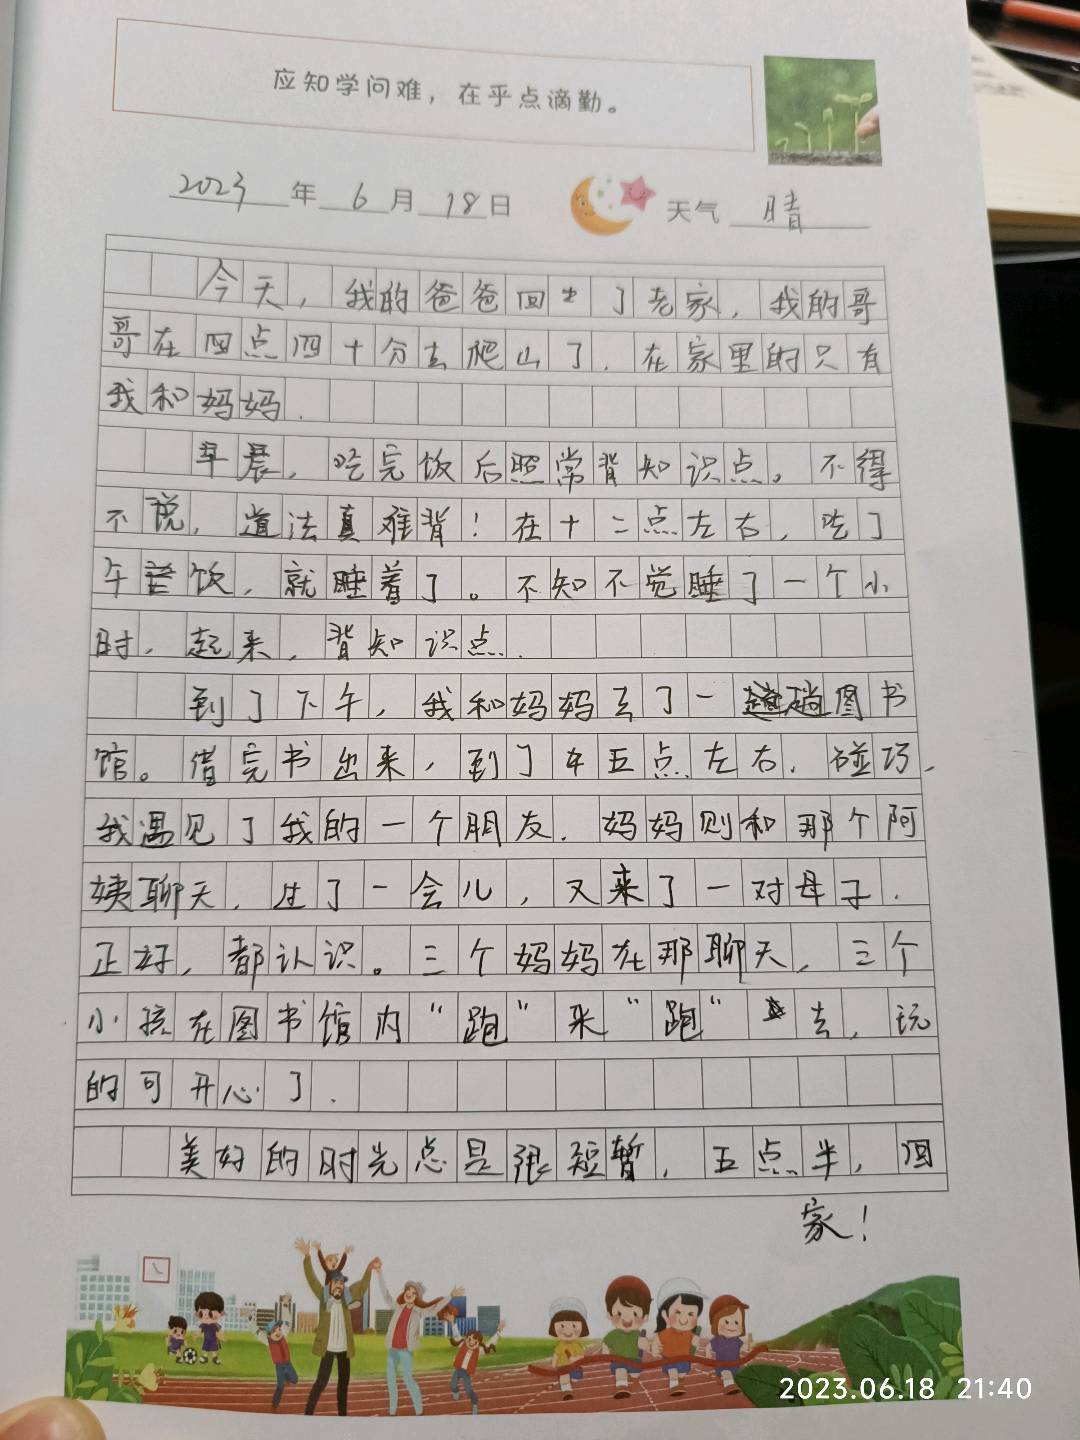 应知学问难，在乎点滴勤。
2023年6月18日 天气 晴
今天，我的爸爸回了老家，我的哥
哥在四点四十分去爬山了.在家里的只有
我和妈妈.
早晨，吃完饭后照常背知识点。不得
不说，道法真难背！在十二点左右，吃了
午饭，就睡着了。不知不觉睡了一个小
时，起来，背知识点.
到了下午，我和妈妈去了一趟图书
馆。借完书出来，到了五点左右.碰巧，
我遇见了我的一个朋友.妈妈则和那个阿
姨聊天，过了一会儿，又来了一对母子.
正好，都认识。三个妈妈在那聊天，三个
小孩在图书馆内“跑”来“跑”去，玩
的可开心了.
美好的时光总是很短暂，五点半，回
家！
2023.06.18 21:40